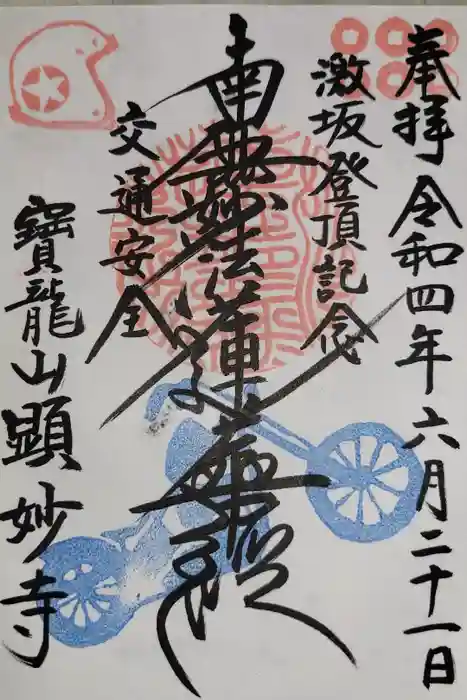 奉拝
令和四年六月二十一日
激坂登頂記念
南無妙法蓮華経
交通安全
寶龍山顕妙寺